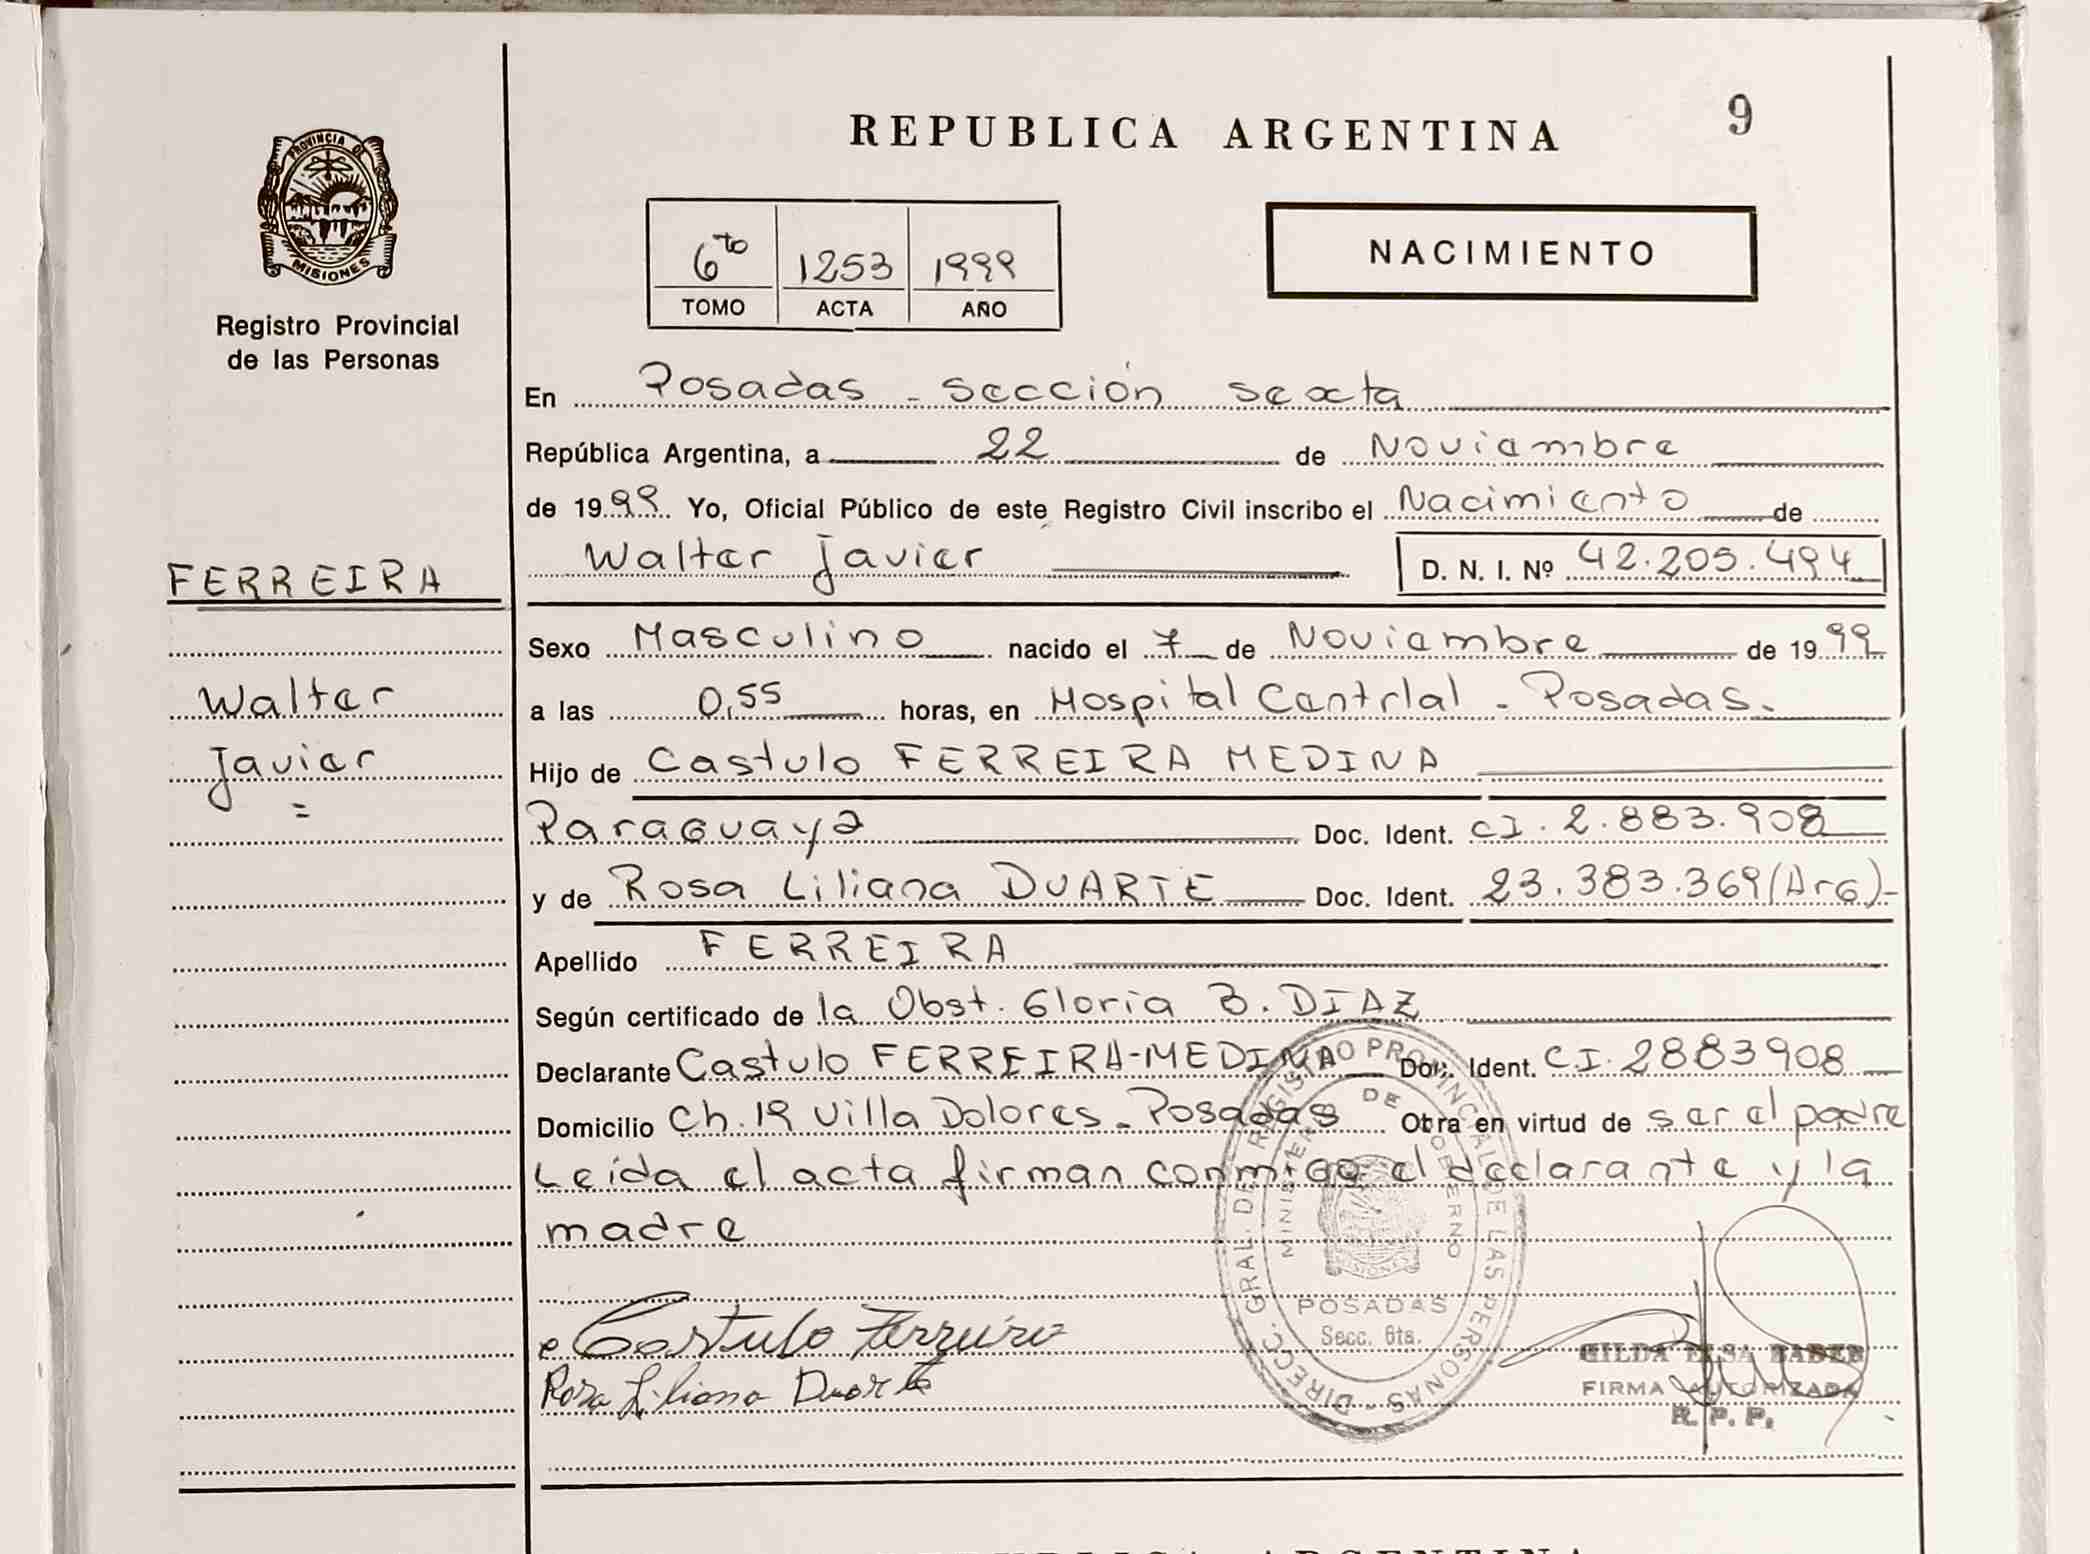 REPUBLICA ARGENTINA
9
PROVINCIA DE
MISIONES
Registro Provincial
de las Personas
6to 1253 1999
TOMO ACTA AÑO
NACIMIENTO
En Posadas - Sección Sexta
República Argentina, a 22 de Noviembre
de 1999 Yo, Oficial Público de este Registro Civil inscribo el Nacimiento de
Walter Javier D. N. I. Nº 42.205.494
FERREIRA
Walter
Javier
=
Sexo Masculino nacido el 7 de Noviembre de 1999
a las 0,55 horas, en Hospital Centrlal - Posadas.
Hijo de Castulo FERREIRA MEDINA
Paraguaya Doc. Ident. CI. 2.883.908
y de Rosa Liliana DUARTE Doc. Ident. 23.383.369 (Arg)-
Apellido FERREIRA
Según certificado de la Obst. Gloria B. DIAZ
Declarante Castulo FERREIRA-MEDINA Doc. Ident. CI. 2883908
Domicilio Ch. 19 Villa Dolores - Posadas Obra en virtud de ser el padre
Leída el acta firman conmigo el declarante y la
madre
Castulo Ferreira
Rosa Liliana Duarte
DIRECC. GRAL. DE REGISTRO PROVINCIAL DE LAS PERSONAS -
MINISTERIO DE GOBIERNO
MISIONES
POSADAS
Secc. 6ta.
GILDA ELSA
FIRMA AUTORIZADA
R. P. P.
REPUBLICA ARGENTINA